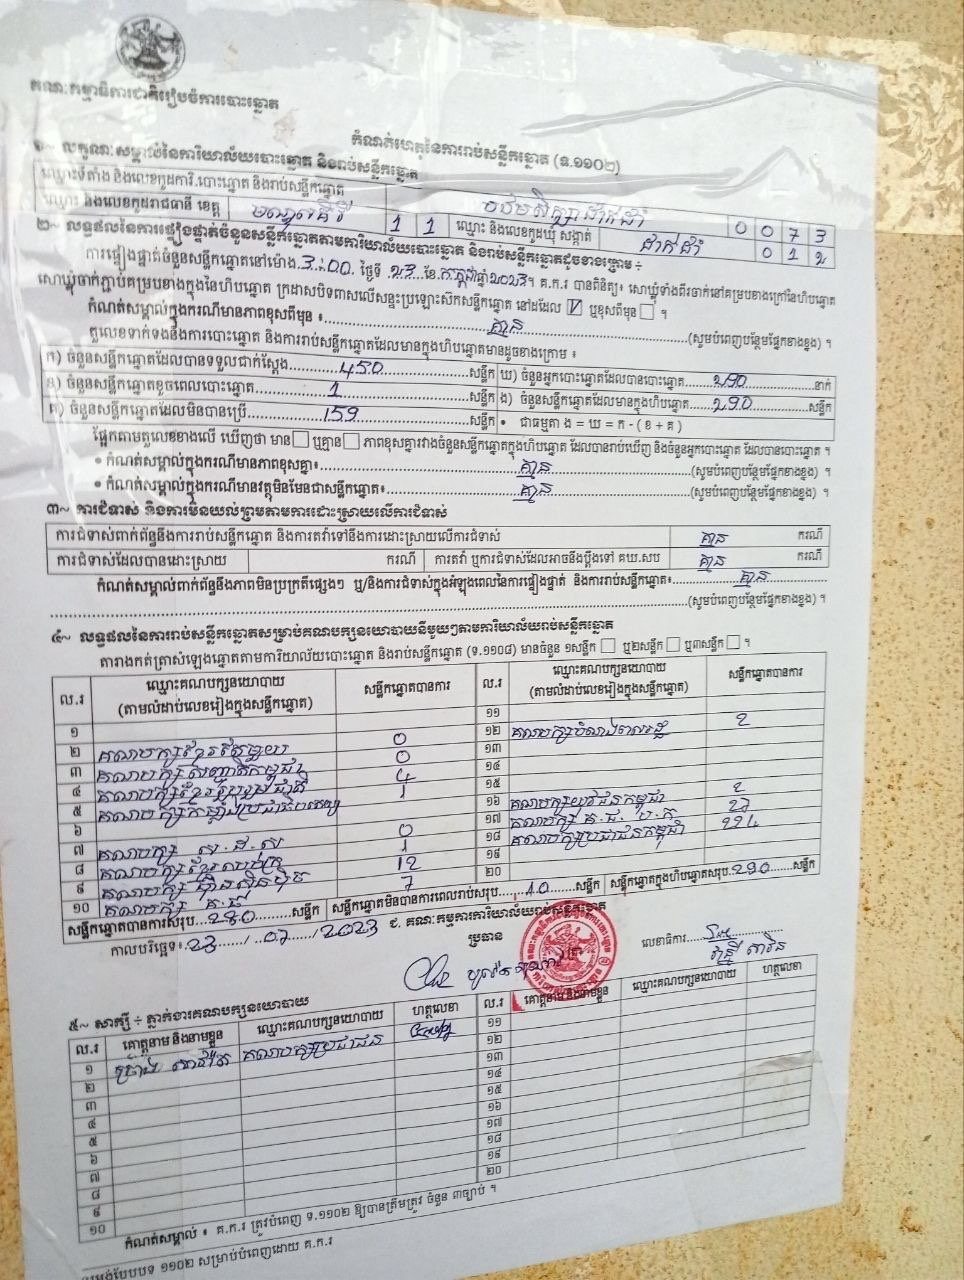 គណៈកម្មាធិការជាតិរៀបចំការបោះឆ្នោត
កំណត់ហេតុនៃការរាប់សន្លឹកឆ្នោត (ទ.១១០២)
១~ លក្ខណៈសម្គាល់នៃការិយាល័យបោះឆ្នោត និងរាប់សន្លឹកឆ្នោត
ឈ្មោះទីតាំង និងលេខកូដការិ.បោះឆ្នោត និងរាប់សន្លឹកឆ្នោត បឋមសិក្សាដាក់ដាំ 0 0 7 3
ឈ្មោះ និងលេខកូដរាជធានី ខេត្ត មណ្ឌលគិរី 1 1 ឈ្មោះ និងលេខកូដឃុំ សង្កាត់ ដាក់ដាំ 0 1 2
២~ លទ្ធផលនៃការផ្ទៀងផ្ទាត់ចំនួនសន្លឹកឆ្នោតតាមការិយាល័យបោះឆ្នោត និងរាប់សន្លឹកឆ្នោតដូចខាងក្រោម ÷
ការផ្ទៀងផ្ទាត់ចំនួនសន្លឹកឆ្នោតនៅម៉ោង 3:00 ថ្ងៃទី 23 ខែ កក្កដា ឆ្នាំ ២០២៣។ គ.ក.រ បានពិនិត្យ៖ សោឃ្លុំទាំងពីរចាក់នៅគម្របខាងក្រៅនៃហិបឆ្នោត
សោឃ្លុំចាក់ភ្ជាប់គម្របខាងក្នុងនៃហិបឆ្នោត ក្រដាសបិទពាសលើសន្ទះប្រឡោះស៊កសន្លឹកឆ្នោត នៅដដែល ☑ ឬខុសពីមុន ☐ ។
កំណត់សម្គាល់ក្នុងករណីមានភាពខុសពីមុន ៖ គ្មាន (សូមបំពេញបន្ថែមផ្នែកខាងខ្នង) ។
តួលេខទាក់ទងនឹងការបោះឆ្នោត និងការរាប់សន្លឹកឆ្នោតដែលមានក្នុងហិបឆ្នោតមានដូចខាងក្រោម ៖
ក) ចំនួនសន្លឹកឆ្នោតដែលបានទទួលជាក់ស្តែង 450 សន្លឹក ឃ) ចំនួនអ្នកបោះឆ្នោតដែលបានបោះឆ្នោត 290 នាក់
ខ) ចំនួនសន្លឹកឆ្នោតខូចពេលបោះឆ្នោត 1 សន្លឹក ង) ចំនួនសន្លឹកឆ្នោតដែលមានក្នុងហិបឆ្នោត 290 សន្លឹក
គ) ចំនួនសន្លឹកឆ្នោតដែលមិនបានប្រើ 159 សន្លឹក • ជាធម្មតា ង = ឃ = ក - ( ខ + គ )
ផ្អែកតាមតួលេខខាងលើ ឃើញថា មាន ☐ ឬគ្មាន ☐ ភាពខុសគ្នារវាងចំនួនសន្លឹកឆ្នោតក្នុងហិបឆ្នោត ដែលបានរាប់ឃើញ និងចំនួនអ្នកបោះឆ្នោត ដែលបានបោះឆ្នោត ។
• កំណត់សម្គាល់ក្នុងករណីមានភាពខុសគ្នា៖ គ្មាន (សូមបំពេញបន្ថែមផ្នែកខាងខ្នង) ។
• កំណត់សម្គាល់ក្នុងករណីមានវត្ថុមិនមែនជាសន្លឹកឆ្នោត៖ គ្មាន (សូមបំពេញបន្ថែមផ្នែកខាងខ្នង) ។
៣~ ការជំទាស់ និងការមិនយល់ព្រមតាមការដោះស្រាយលើការជំទាស់
ការជំទាស់ពាក់ព័ន្ធនឹងការរាប់សន្លឹកឆ្នោត និងការតវ៉ាទៅនឹងការដោះស្រាយលើការជំទាស់ គ្មាន ករណី
ការជំទាស់ដែលបានដោះស្រាយ ករណី ការតវ៉ា ឬការជំទាស់ដែលអាចនឹងប្តឹងទៅ គឃ.សប គ្មាន ករណី
កំណត់សម្គាល់ពាក់ព័ន្ធនឹងភាពមិនប្រក្រតីផ្សេងៗ ឬ/និងការជំទាស់ក្នុងអំឡុងពេលនៃការផ្ទៀងផ្ទាត់ និងការរាប់សន្លឹកឆ្នោត៖ គ្មាន
(សូមបំពេញបន្ថែមផ្នែកខាងខ្នង) ។
៤~ លទ្ធផលនៃការរាប់សន្លឹកឆ្នោតសម្រាប់គណបក្សនយោបាយនីមួយៗតាមការិយាល័យរាប់សន្លឹកឆ្នោត
តារាងកត់ត្រាសំឡេងឆ្នោតតាមការិយាល័យបោះឆ្នោត និងរាប់សន្លឹកឆ្នោត (ទ.១១០៨) មានចំនួន ១សន្លឹក ☐ ឬ២សន្លឹក ☐ ឬ៣សន្លឹក ☐ ។
ល.រ ឈ្មោះគណបក្សនយោបាយ សន្លឹកឆ្នោតបានការ ល.រ ឈ្មោះគណបក្សនយោបាយ សន្លឹកឆ្នោតបានការ
(តាមលំដាប់លេខរៀងក្នុងសន្លឹកឆ្នោត) (តាមលំដាប់លេខរៀងក្នុងសន្លឹកឆ្នោត)
១ ១១
២ គណបក្សខ្មែរតែមួយ 0 ១២ 2
៣ គណបក្ស 0 ១៣
៤ គណបក្សខ្មែររួបរួមជាតិ 4 ១៤
៥ គណបក្សកម្លាំងប្រជាធិបតេយ្យ 1 ១៥
៦ ១៦ គណបក្សយុវជនកម្ពុជា 2
៧ គណបក្ស ស.ជ.ស 0 ១៧ គណបក្ស
៨ គណបក្សខ្មែរ 1 ១៨ គណបក្សប្រជាជនកម្ពុជា
៩ គណបក្ស 12 ១៩
១០ គណបក្ស 7 ២០
សន្លឹកឆ្នោតបានការសរុប 280 សន្លឹក សន្លឹកឆ្នោតមិនបានការពេលរាប់សរុប 10 សន្លឹក សន្លឹកឆ្នោតក្នុងហិបឆ្នោតសរុប 290 សន្លឹក
កាលបរិច្ឆេទ៖ 23 / 07 / 2023 ជ. គណៈកម្មការការិយាល័យរាប់សន្លឹកឆ្នោត
ប្រធាន លេខាធិការ
៥~ សាក្សី ÷ ភ្នាក់ងារគណបក្សនយោបាយ
ល.រ គោត្តនាម និងនាមខ្លួន ឈ្មោះគណបក្សនយោបាយ ហត្ថលេខា ល.រ គោត្តនាម និងនាមខ្លួន ឈ្មោះគណបក្សនយោបាយ ហត្ថលេខា
១ គណបក្សប្រជាជន ១១
២ ១២
៣ ១៣
៤ ១៤
៥ ១៥
៦ ១៦
៧ ១៧
៨ ១៨
៩ ១៩
១០ ២០
កំណត់សម្គាល់ ៖ គ.ក.រ ត្រូវបំពេញ ទ.១១០២ ឱ្យបានត្រឹមត្រូវ ចំនួន ៣ច្បាប់ ។
ទម្រង់បែបបទ ១១០២ សម្រាប់បំពេញដោយ គ.ក.រ